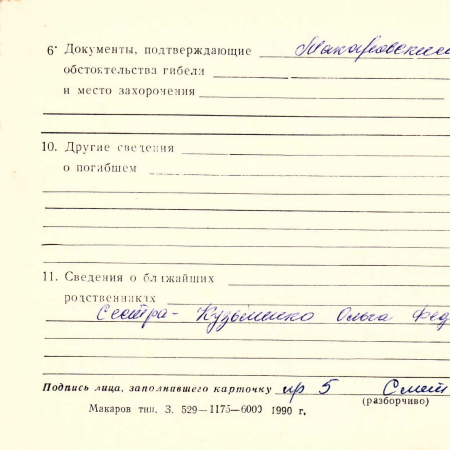 6· Документы, подтверждающие Макаровский
обстоятельства гибели
и место захоронения
10. Другие сведения
о погибшем
11. Сведения о ближайших
родственниках
Сестра - Кузьменко Ольга Фед
Подпись лица, заполнившего карточку пр 5 Смет
(разборчиво)
Макаров тип. З. 529—1175—6000 1990 г.